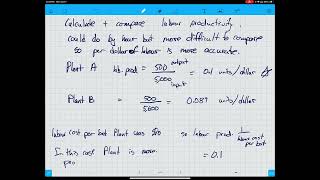 Calculate + compare labour productivity.
could do by hour but more difficult to compare
so per dollar of labour is more accurate.
Plant A lab. prod = 500 output / 5000 input = 0.1 units/dollar
Plant B = 500 / 5600 = 0.089 units/dollar
labour cost per bat Plant was $10 so labour prod. 1 / labour cost per bat
In this case Plant is more = 0.1